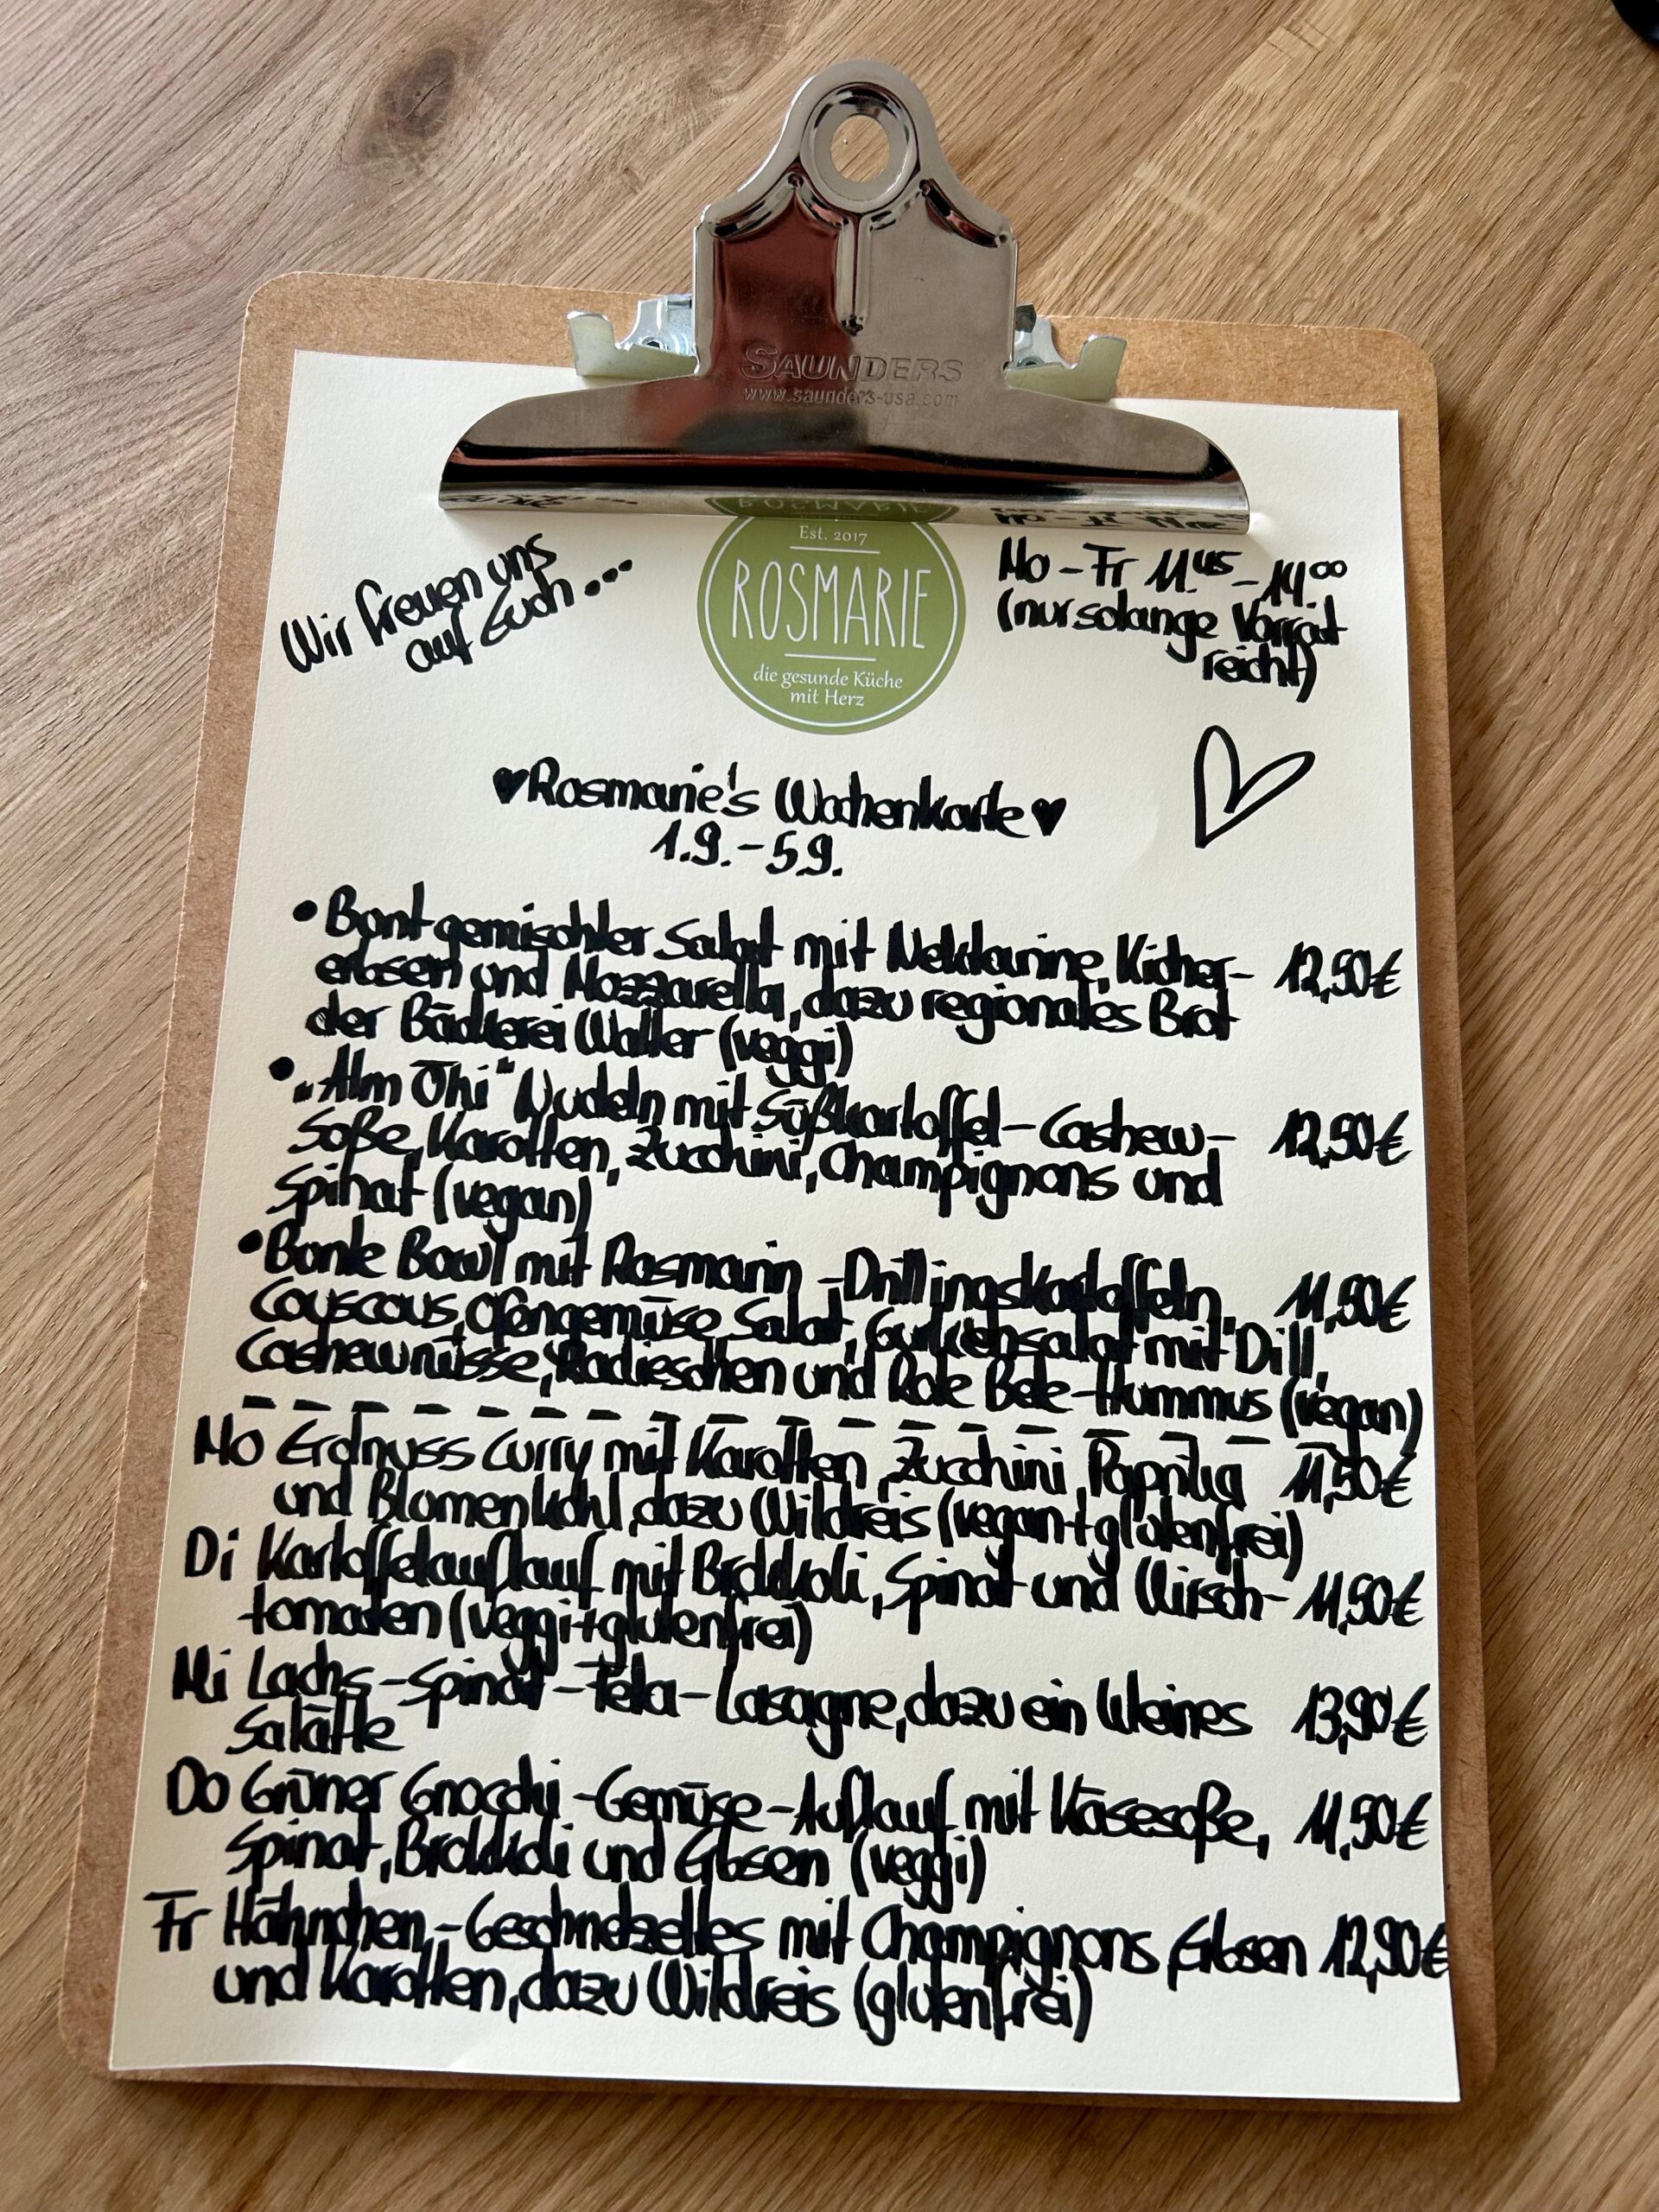 SAUNDERS
www.saunders-usa.com
Wir freuen uns
auf Euch...
Est. 2017
ROSMARIE
die gesunde Küche
mit Herz
Mo - Fr 11.45 - 14.00
(nur solange Vorrat
reicht)
♥Rosmarie's Wochenkarte♥
1.9. - 5.9.
• Bunt gemischter Salat mit Nektarine, Kicher- 12,50€
erbsen und Mozzarella, dazu regionales Brot
der Bäckerei Walter (veggi)
• „Alm Öhi" Nudeln mit Süßkartoffel-Cashew- 12,50€
Soße, Karotten, Zucchini, Champignons und
Spinat (vegan)
• Bunte Bowl mit Rosmarin-Drillingskartoffeln, 11,50€
Couscous, Ofengemüse, Salat, Gurkensalat mit Dill,
Cashewnüsse, Radieschen und Rote Bete-Hummus (vegan)
Mo Erdnuss Curry mit Karotten, Zucchini, Paprika 11,50€
und Blumenkohl, dazu Wildreis (vegan+glutenfrei)
Di Kartoffelauflauf mit Brokkoli, Spinat und Kirsch- 11,50€
tomaten (veggi+glutenfrei)
Mi Lachs-Spinat-Feta-Lasagne, dazu ein kleines 13,90€
Salätle
Do Grüner Gnocchi-Gemüse-Auflauf mit Käsesoße, 11,50€
Spinat, Brokkoli und Erbsen (veggi)
Fr Hähnchen-Geschnetzeltes mit Champignons, Erbsen 12,90€
und Karotten, dazu Wildreis (glutenfrei)